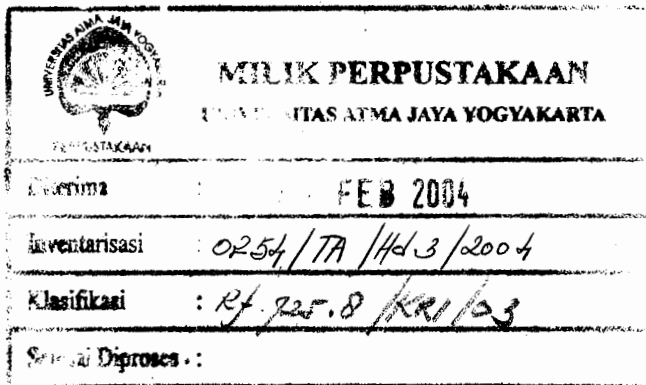 UNIVERSITAS ATMA JAYA YOGYAKARTA
PERPUSTAKAAN
MILIK PERPUSTAKAAN
UNIVERSITAS ATMA JAYA YOGYAKARTA
Diterima : FEB 2004
Inventarisasi : 0254/TA/Hd3/2004
Klasifikasi : Rf.725.8/KRI/03
Selesai Diproses :